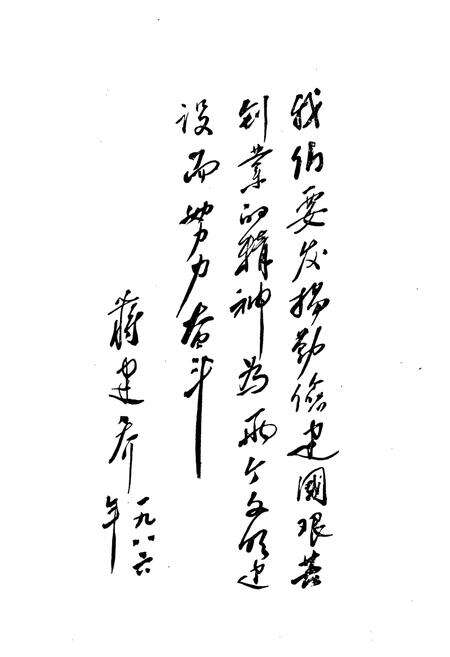 我们要发扬勤俭建國艰苦
创業的精神为两个文明建
设而努力奋斗
蒋建
一九八六
年